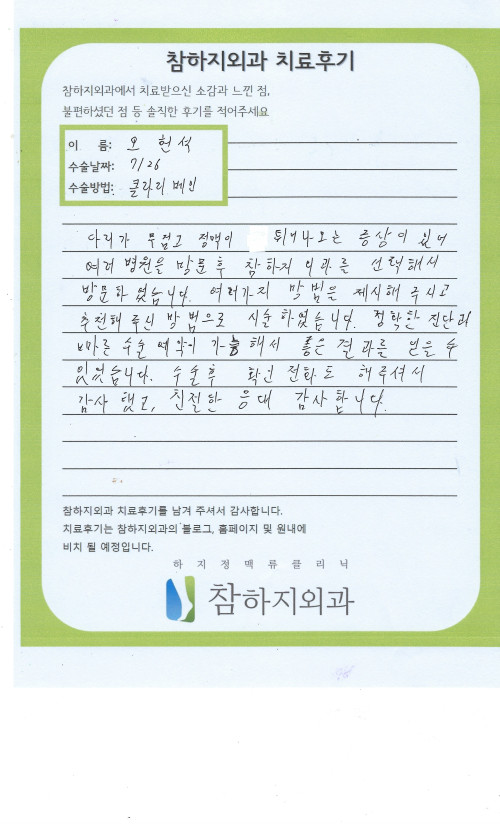 참하지외과 치료후기
참하지외과에서 치료받으신 소감과 느낀 점,
불편하셨던 점 등 솔직한 후기를 적어주세요
이 름: 오현석
수술날짜: 7/26
수술방법: 클라리베인
다리가 무겁고 정맥이 튀어나오는 증상이 있어
여러 병원을 방문후 참하지외과를 선택해서
방문하였습니다. 여러가지 방법을 제시해 주시고
추천해 주신 방법으로 시술하였습니다. 정확한 진단과
빠른 수술 예약이 가능해서 좋은 결과를 얻을 수
있었습니다. 수술후 확인 전화도 해주셔서
감사했고, 친절한 응대 감사합니다.
참하지외과 치료후기를 남겨 주셔서 감사합니다.
치료후기는 참하지외과의 블로그, 홈페이지 및 원내에
비치 될 예정입니다.
하지정맥류클리닉
참하지외과